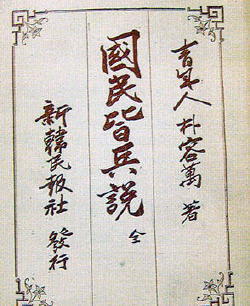 人 朴容萬 著
國民皆兵說 全
新韓民報社 發行